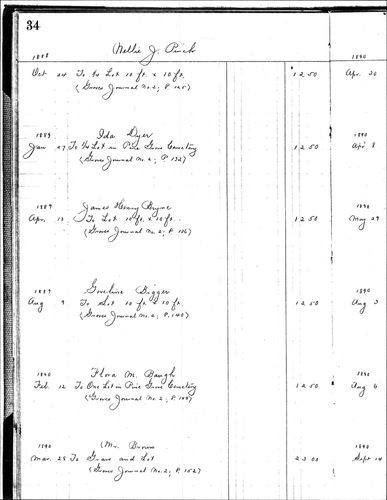 34
Nellie J.
1888 1890
Oct 24 To ½ Lot 10 ft. x 10 ft. 12 50 Apr. 20
(Groves Journal No. 2; P. 125)
1889 Ida Dyer 1890
Jan 27 To ½ Lot in Pine Grove Cemetery 12 50 Apr 8
(Groves Journal No. 2; P. 132)
1889 James Henry Byrne 1890
Apr. 13 To Lot 10 ft. x 10 ft. 12 50 May 29
(Groves Journal No. 2; P. 136)
1889 Bigger 1890
Aug 9 To Lot 10 ft x 10 ft. 12 50 Aug 3
(Groves Journal No. 2; P. 140)
1890 Flora M. Baugh 1890
Feb. 12 To One Lot in Pine Grove Cemetery 12 50 Aug 6
(Groves Journal No. 2; P. 149)
1890 (Mr. Brown 1890
Mar. 28 To Grave and Lot 23 00 Sept 14
(Groves Journal No. 2; P. 152)